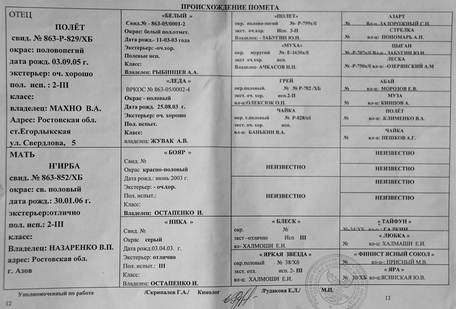 ПРОИСХОЖДЕНИЕ ПОМЕТА
ОТЕЦ
ПОЛЁТ
свид. № 863-Р-829/ХБ
окрас: половопегий
дата рожд. 03.09.05 г.
экстерьер: оч. хорошо
пол. исп. : 2-III
класс:
владелец: МАХНО В.А.
Адрес: Ростовская обл.
ст.Егорлыкская
ул. Свердлова, 5
МАТЬ
Н'ИРБА
свид. № 863-852/ХБ
Окрас: св. половый
дата рожд.: 30.01.06 г.
экстерьер:отлично
пол. исп.: 2-III
Класс:
Владелец: НАЗАРЕНКО В.П.
адрес: Ростовская обл.
г. Азов
«БЕЛЫЙ»
Свид.№ - 863-05/0001-2
Окрас: белый под.отмет.
Дата рожд.: 11-03-03 года
Экстерьер: оч.хор.
Полевые исп.
Класс:
Владелец: РЫБИНЦЕВ А.А.
«ЛЕДА»
ВРКОС № 863-05/0002-4
Окрас - половый
Дата рожд. 25.08.03 г.
Экстерьер: оч. хор.
Пол. испыт.
Класс:
Владелец: ЖУВАК А.В.
« БОЯР »
Свид. №
Окрас: красно-половый
Дата рожд.: июнь 2003 г.
Экстерьер: - оч.хор.
Пол. испыт.:
Класс:
Владелец: ОСТАПЕНКО И.
« НИКА »
Свид. №
Окрас: серый
Дата рожд.03.04.03. г.
Экстерьер: отлично
Пол. испыт.: III
Класс:
Владелец: ОСТАПЕНКО И.
«ПОЛЕТ»
экст. оч.хор. Исп. 3-II
Владелец: - ЗАБУГИН Ю.Н
«МУХА»
Владелец: АЧКАСОВ Н.П.
ГРЕЙ
экст. оч.хор. исп.2-II
ЧАЙКА
вл-ц: БАНЬКИН В.А.
НЕИЗВЕСТЕН
НЕИЗВЕСТЕН
« БЛЕСК »
окр. №
экст -отлично Исп III
вл-ц- ХАЛМОШИ Е.И.
«ЯРКАЯ ЗВЕЗДА»
окр.половый № 38/Хб
экст. отл. исп. 2- III
вл-ц: ХАЛМОШИ Е.И
АЗАРТ
СТРЕЛКА
ЦЫГАН
ЛЕСКА
АБАЙ
№ вл-ц- МОРОЗОВ Е.В.
МУЗА
№ вл-ц: КИНЦОВ А.
ПОЛЕТ
№ вл-ц: КЛИМЕНКО В.А.
ЧАЙКА
№ вл-ц: ПЕШКОВ А.Г.
НЕИЗВЕСТЕН
НЕИЗВЕСТЕН
НЕИЗВЕСТЕН
НЕИЗВЕСТЕН
« ТАЙФУН »
« ЛЮБКА »
№ вл-ц- ХАЛМАШИ Е.И.
« ФИНИСТ ЯСНЫЙ СОКОЛ »
№ вл-ц: - ПРИСНЫЙ М.В.
«ЯРА»
№ 30/ХБ вл-ц:ЯСИНСКАЯ Ю.В.
Уполномоченный по работе /Скрипалев Г.А./ Кинолог /Рудакова Е.Л./ М.П.
12
13